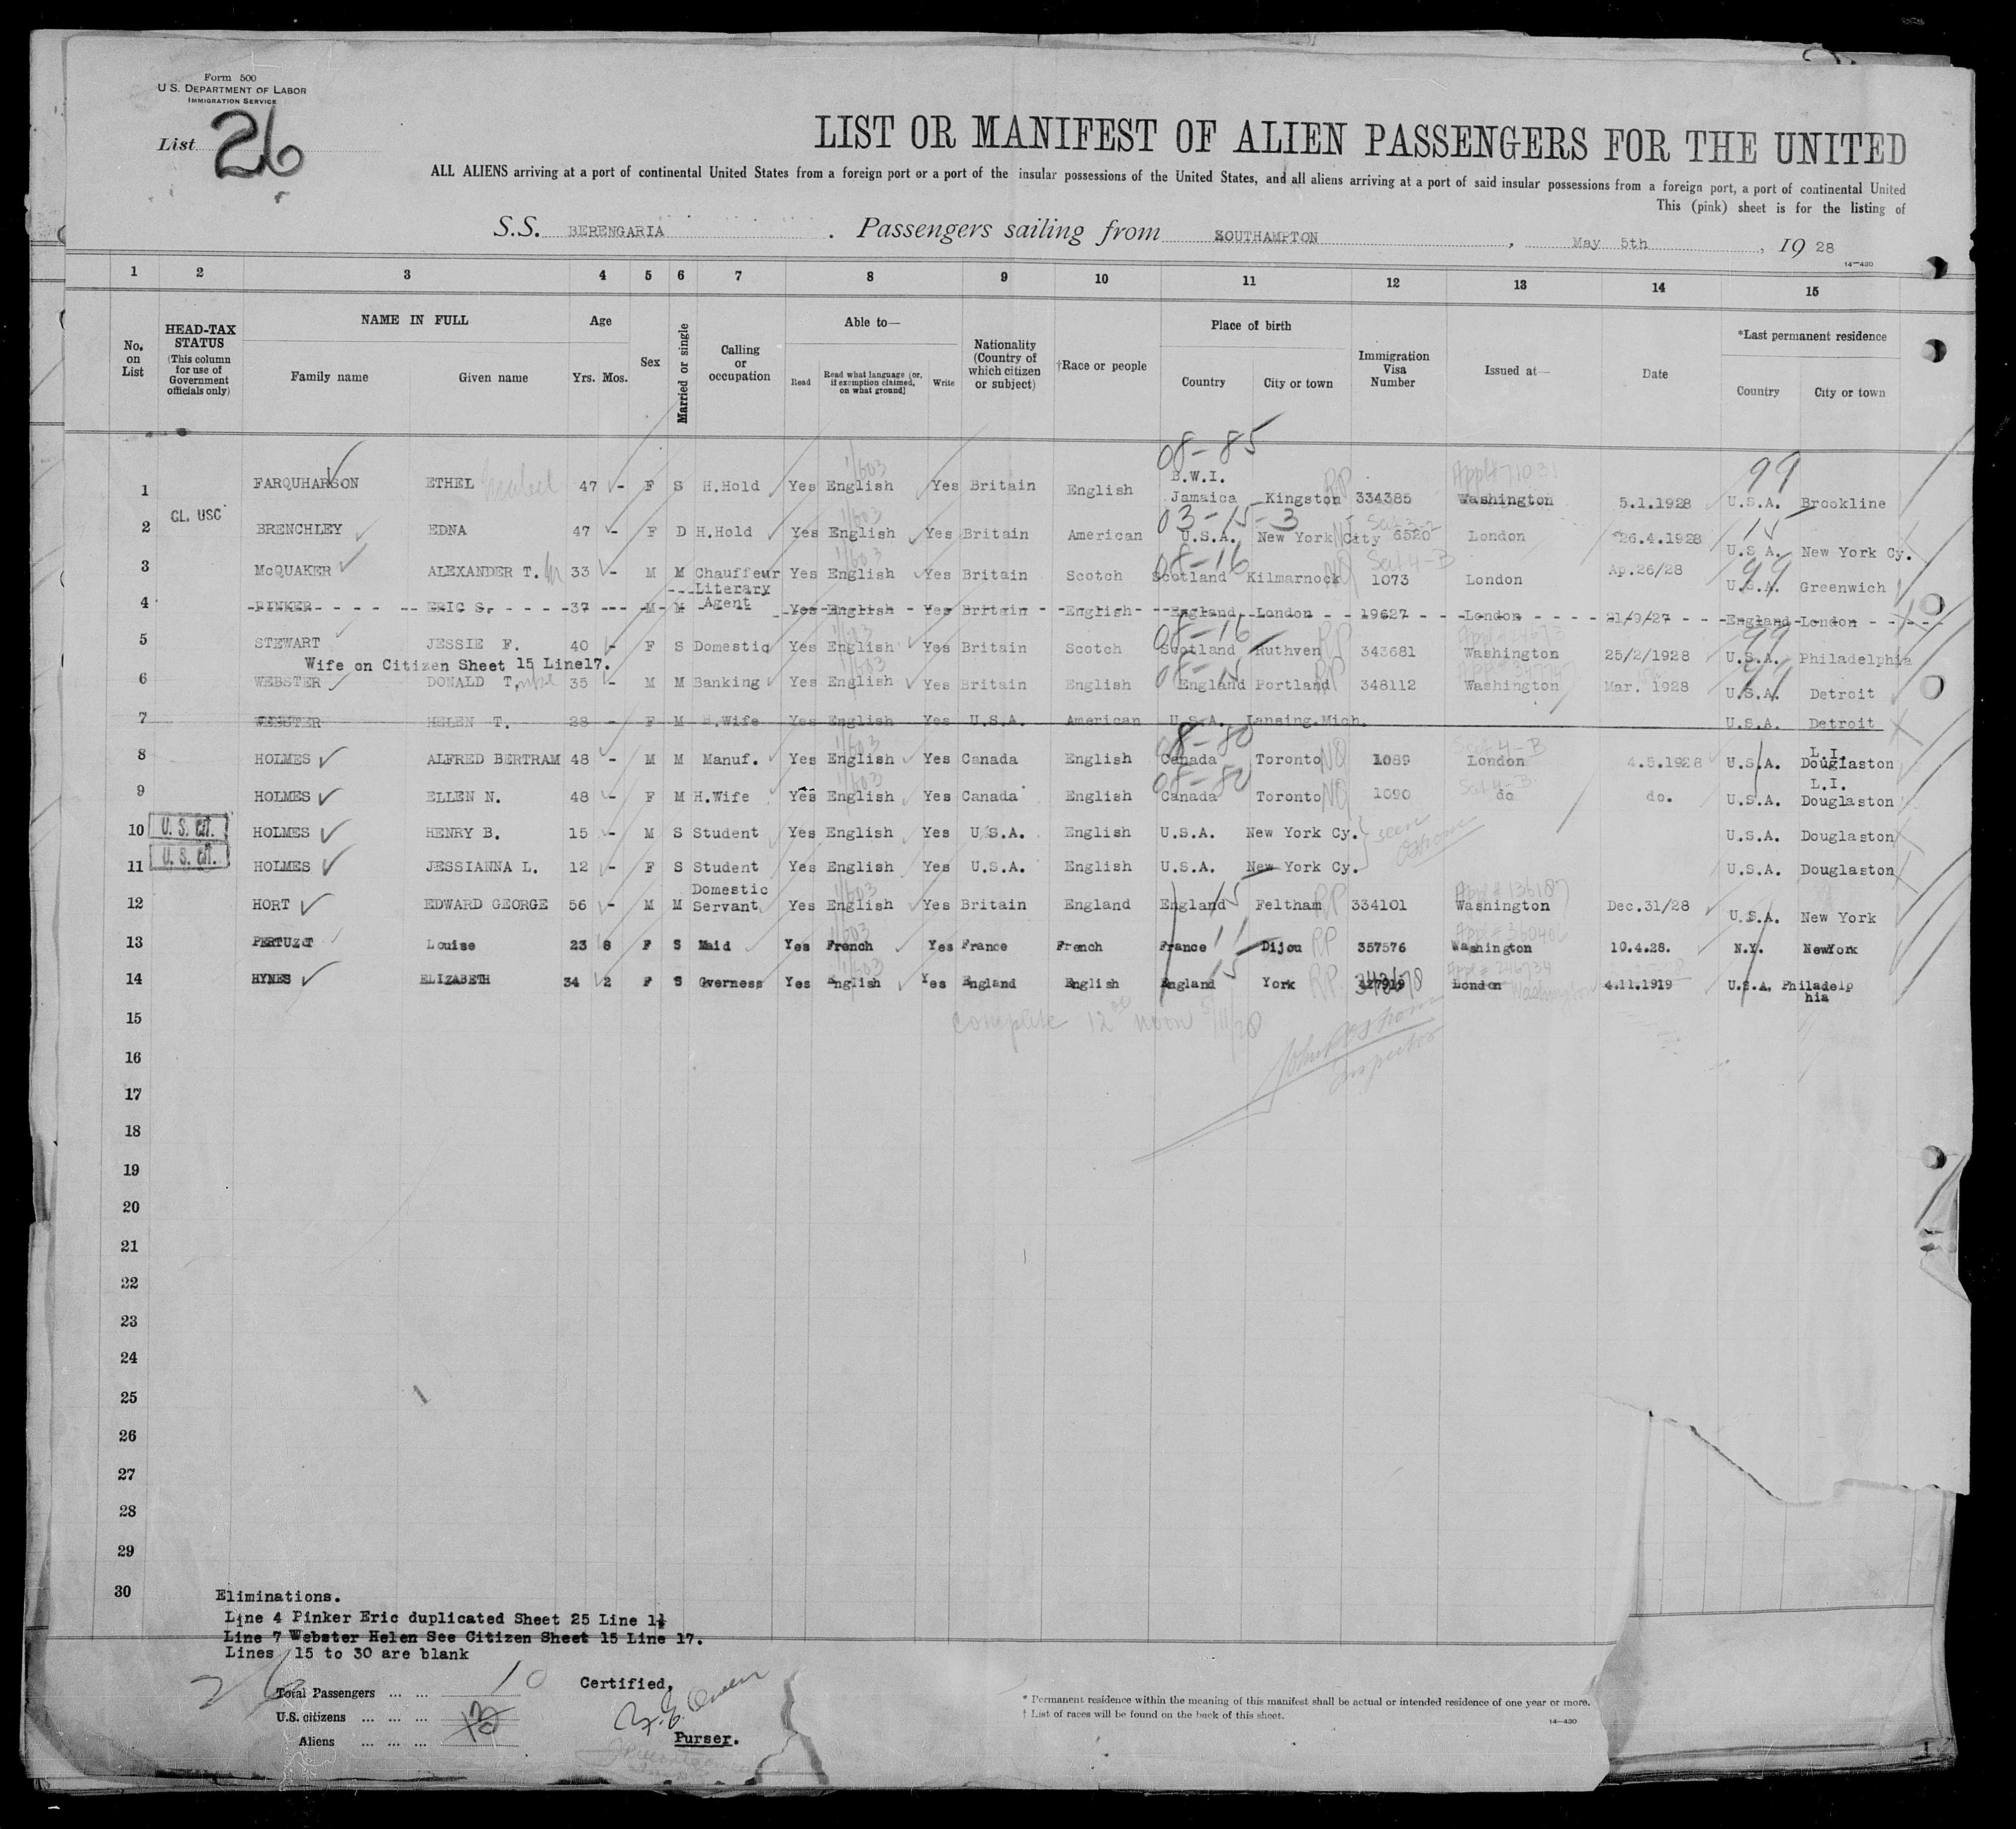 Form 500
U.S. DEPARTMENT OF LABOR
IMMIGRATION SERVICE
List 26
LIST OR MANIFEST OF ALIEN PASSENGERS FOR THE UNITED
ALL ALIENS arriving at a port of continental United States from a foreign port or a port of the insular possessions of the United States, and all aliens arriving at a port of said insular possessions from a foreign port, a port of continental United
This (pink) sheet is for the listing of
S.S. BERENGARIA . Passengers sailing from SOUTHAMPTON , May 5th , 19 28
14—430
1 2 3 4 5 6 7 8 9 10 11 12 13 14 15
No. on List
HEAD-TAX STATUS (This column for use of Government officials only)
NAME IN FULL Family name Given name
Age Yrs. Mos.
Sex
Married or single
Calling or occupation
Able to— Read Read what language [or, if exemption claimed, on what ground] Write
Nationality (Country of which citizen or subject)
†Race or people
Place of birth Country City or town
Immigration Visa Number
Issued at—
Date
*Last permanent residence Country City or town
08-85 99
1 FARQUHARSON ETHEL 47 - F S H.Hold Yes English Yes Britain English B.W.I. Jamaica Kingston RP 334385 Washington 5.1.1928 U.S.A. Brookline
CL. USC
03-15-3 15
2 BRENCHLEY EDNA 47 - F D H.Hold Yes English Yes Britain American U.S.A. New York City 6520 London 26.4.1928 U.S.A. New York Cy.
08-16 99 Sect 4-B
3 McQUAKER ALEXANDER T. 33 - M M Chauffeur Yes English Yes Britain Scotch Scotland Kilmarnock NQ 1073 London Ap.26/28 U.S.A. Greenwich
4 PINKER ERIC S. 37 M M Literary Agent Yes English Yes Britain English England London 19627 London 21/9/27 England London
08-16 99
5 STEWART JESSIE F. 40 - F S Domestic Yes English Yes Britain Scotch Scotland Ruthven RP 343681 Washington 25/2/1928 U.S.A. Philadelphia
Wife on Citizen Sheet 15 Line17.
08-15 99
6 WEBSTER DONALD T. 35 - M M Banking Yes English Yes Britain English England Portland RP 348112 Washington Mar. 1928 U.S.A. Detroit
7 WEBSTER HELEN T. 28 - F M H.Wife Yes English Yes U.S.A. American U.S.A. Lansing.Mich. U.S.A. Detroit
08-80 Sect 4-B
8 HOLMES ALFRED BERTRAM 48 - M M Manuf. Yes English Yes Canada English Canada Toronto NQ 1089 London 4.5.1928 U.S.A. L.I. Douglaston
08-80 Sect 4-B
9 HOLMES ELLEN N. 48 - F M H.Wife Yes English Yes Canada English Canada Toronto NQ 1090 do do. U.S.A. L.I. Douglaston
10 U.S. Cit. HOLMES HENRY B. 15 - M S Student Yes English Yes U.S.A. English U.S.A. New York Cy. U.S.A. Douglaston
11 U.S. Cit. HOLMES JESSIANNA L. 12 - F S Student Yes English Yes U.S.A. English U.S.A. New York Cy. U.S.A. Douglaston
12 HORT EDWARD GEORGE 56 - M M Domestic Servant Yes English Yes Britain England England 15 Feltham RP 334101 Washington Dec.31/28 U.S.A. New York
13 PERTUZOT Louise 23 8 F S Maid Yes French Yes France French France 11 Dijon RP 357576 Washington 10.4.28. N.Y. NewYork
14 HYNES ELIZABETH 34 2 F S Gverness Yes English Yes England English England 15 York RP London Washington 4.11.1919 U.S.A. Philadelphia
15 complete 12 noon 5/11/28
16 Inspector
17
18
19
20
21
22
23
24
25
26
27
28
29
30
Eliminations.
Line 4 Pinker Eric duplicated Sheet 25 Line
Line 7 Webster Helen See Citizen Sheet 15 Line 17.
Lines 15 to 30 are blank
26
Total Passengers ... ... 10
U.S. citizens ... ... ...
Aliens ... ... ...
Certified,
Purser.
* Permanent residence within the meaning of this manifest shall be actual or intended residence of one year or more.
† List of races will be found on the back of this sheet.
14—430